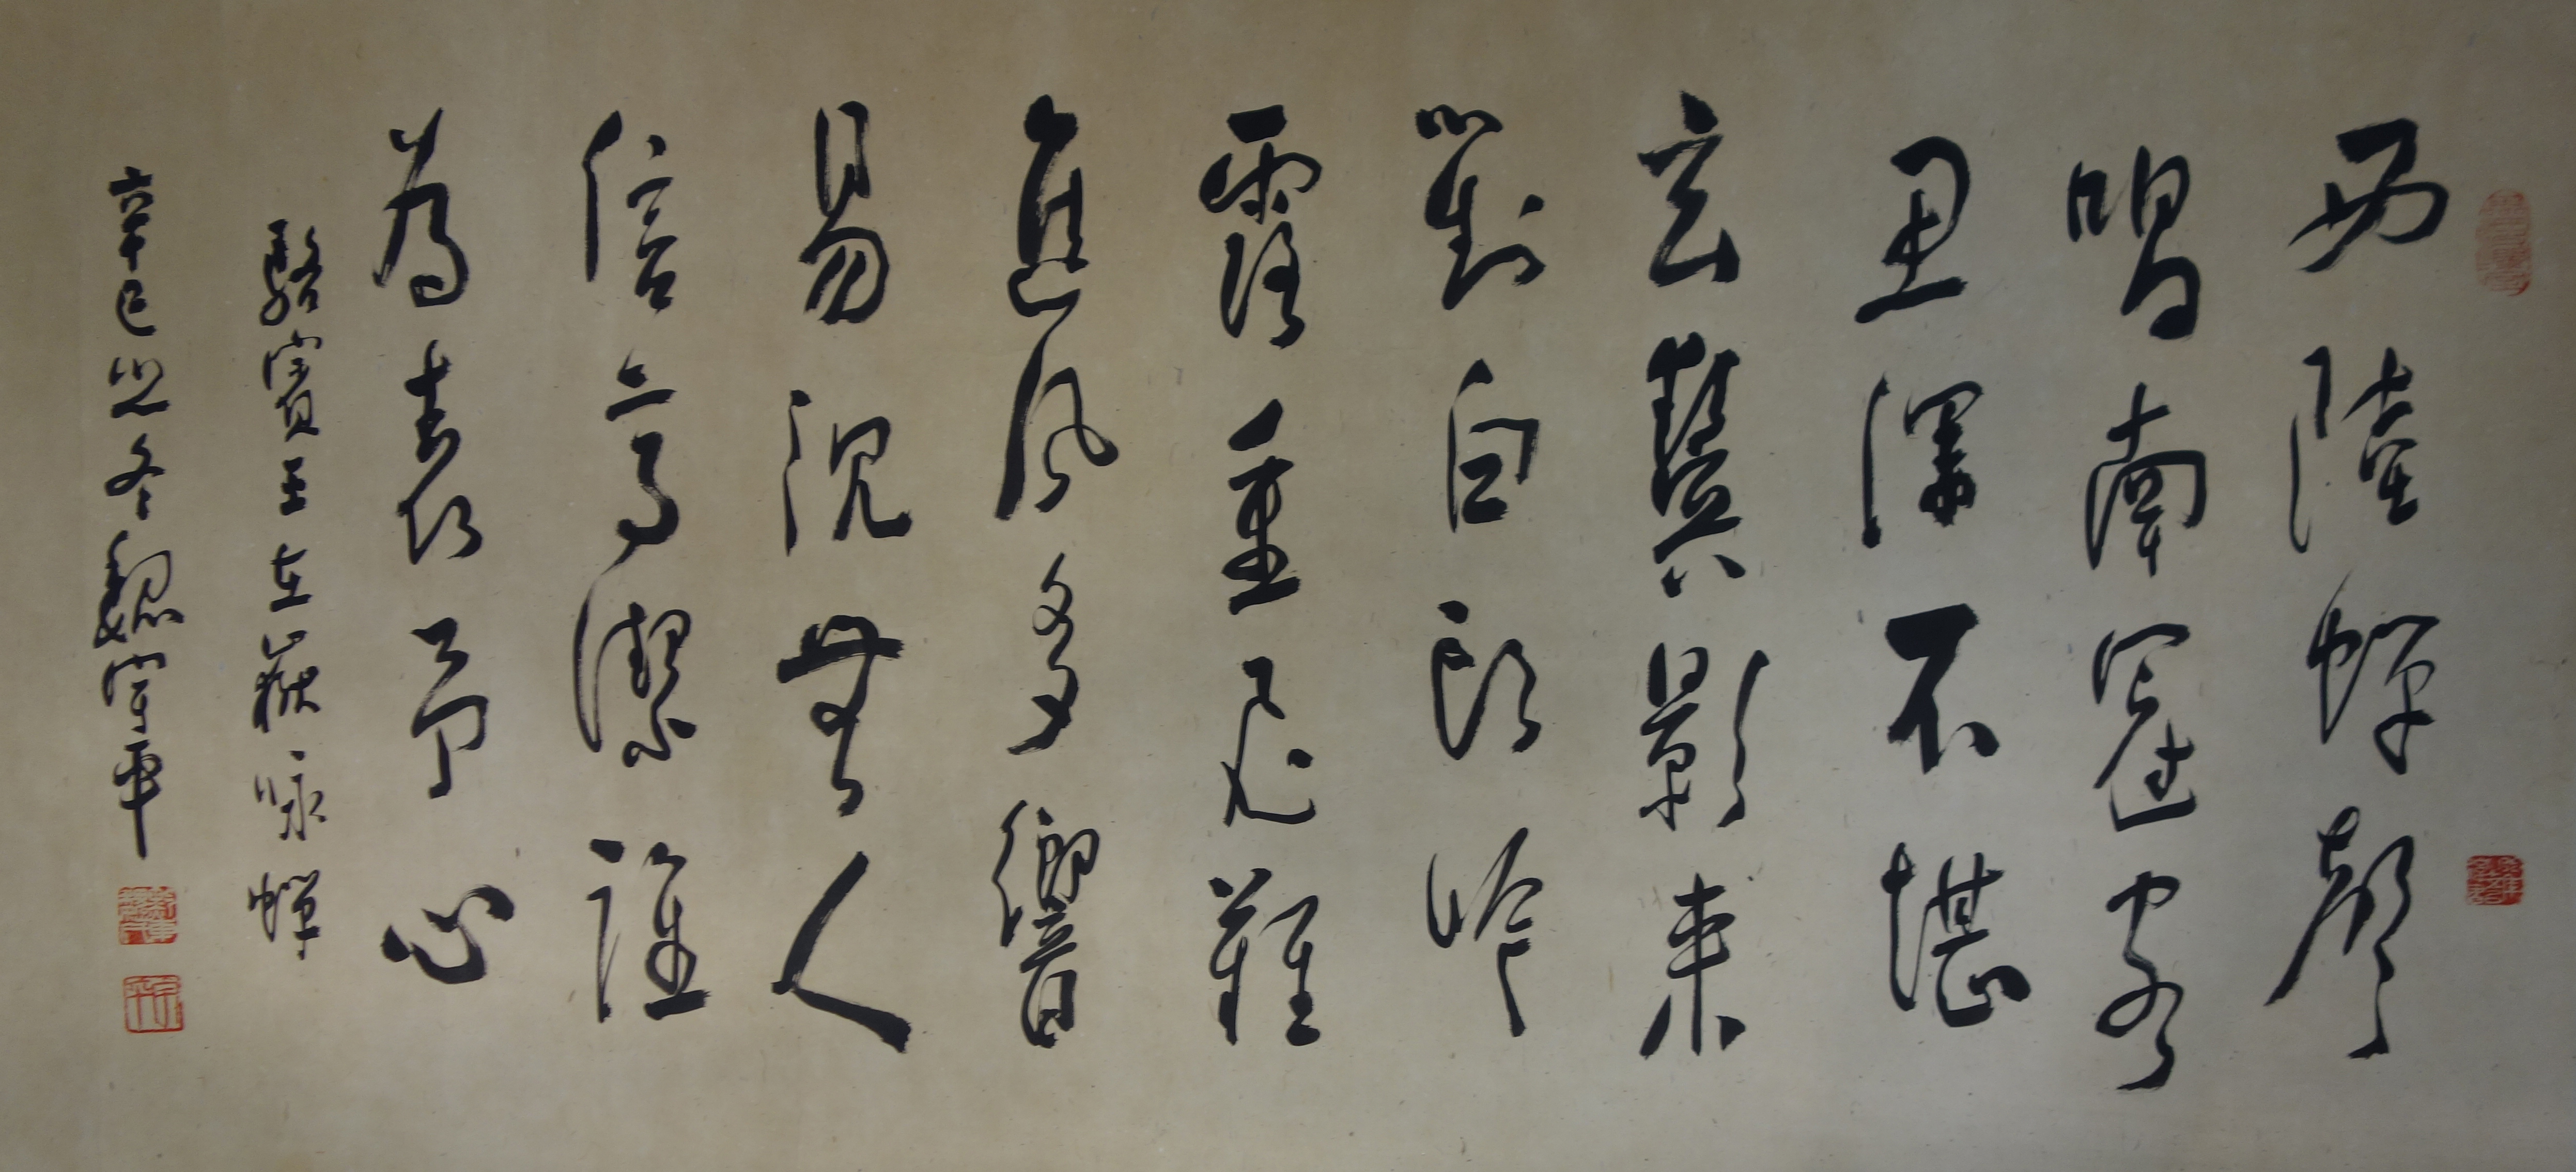 西陸蟬聲
唱南冠客
思深不堪
玄鬢影來
對白頭吟
露重飛難
進風多響
易沉無人
信高潔誰
為表予心
駱賓王在獄咏蟬
辛巳 冬魏宇平